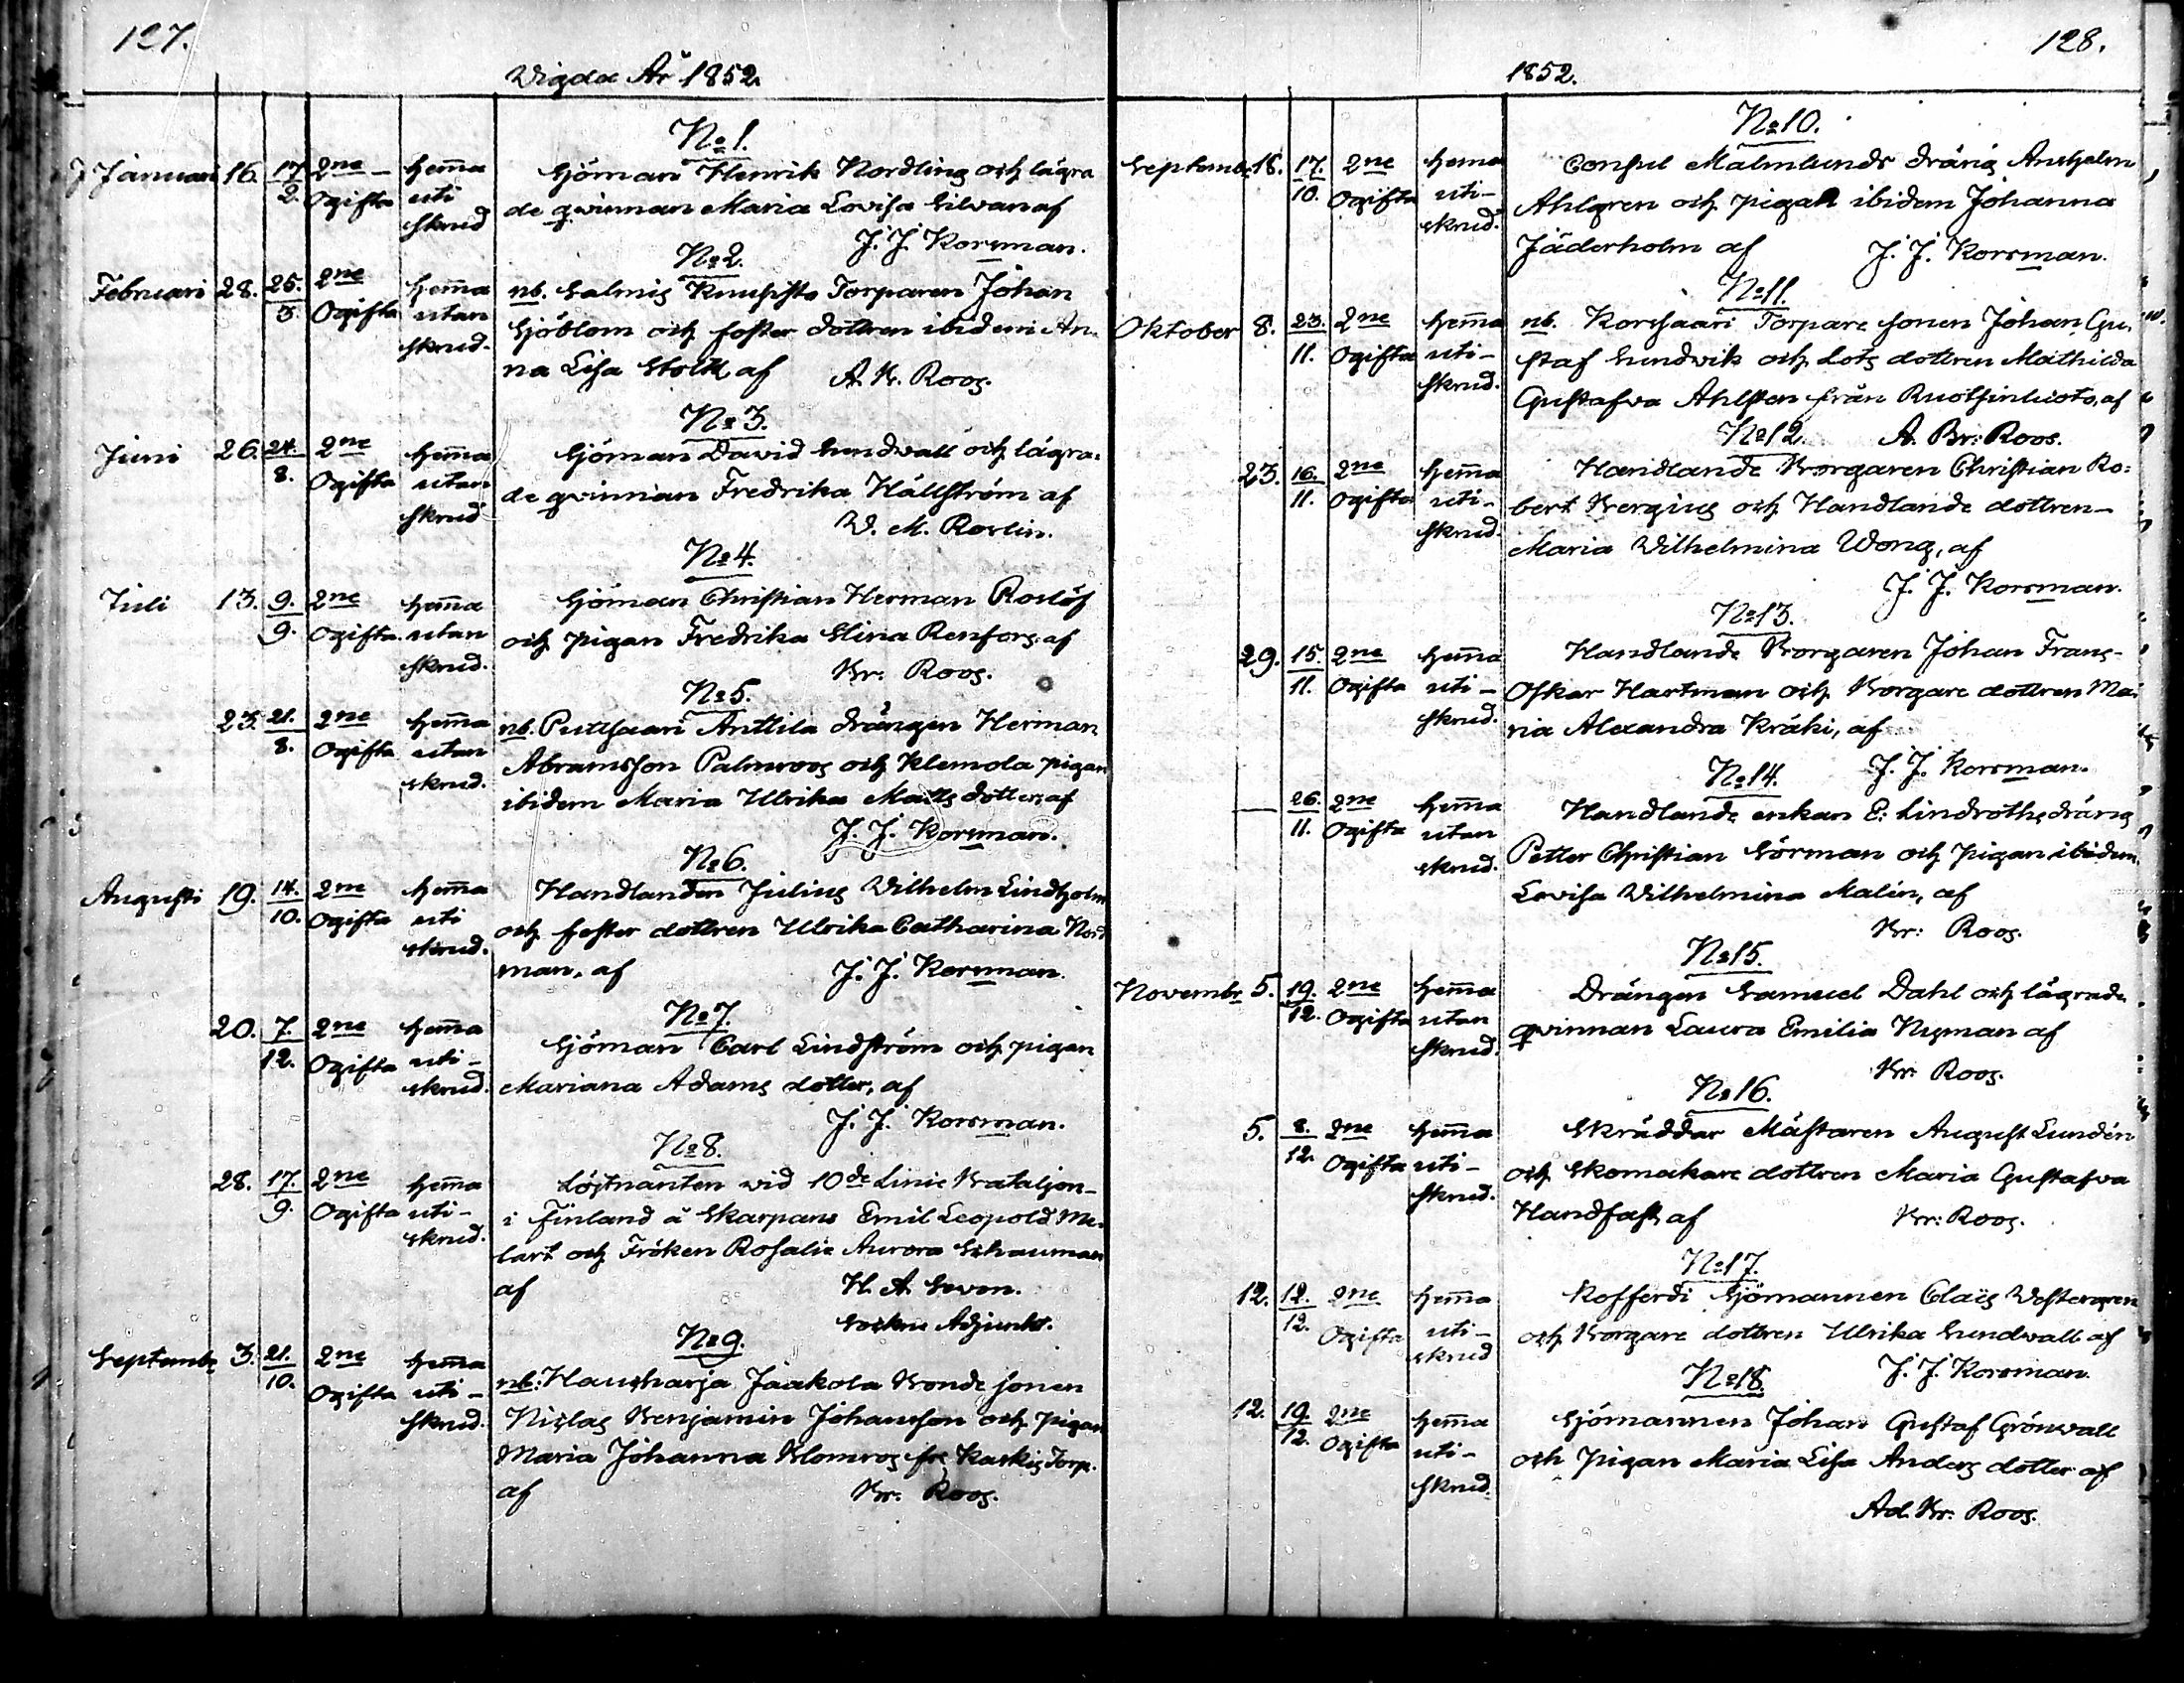 127.
Wigda År 1852.
No 1.
Januari 16. 17/2. 2ne Ogifta hemma uti skrud
Sjöman Henrik Nordling och lägra
de qvinnan Maria Lovisa Silvan af
J. J. Korsman.
No 2.
Februari 28. 25./3. 2ne Ogifta hemma utan skrud.
nb. Salmis Torparen Johan
Sjöblom och foster dottren ibidem An-
na Lisa Stolt, af A. Br. Roos.
No 3.
Juni 26. 24./8. 2ne Ogifta hemma utan skrud
Sjöman David Sundvall och lägra-
de qvinnan Fredrika Hällström af
W. M. Roslin.
No 4.
Juli 13. 9./9. 2ne Ogifta hemma utan skrud.
Sjöman Christian Herman Roslöf
och pigan Fredrika Stina Renfors, af
Br: Roos.
No 5.
23. 21./8. 2ne Ogifta hemma utan skrud.
nb. Puttsaari Anttila drängen Herman
Abramsson Palmroos och Klemola pigan
ibidem Maria Ulrika Matts dotter, af
J. J. Korsman.
No 6.
Augusti 19. 14./10. 2ne Ogifta hemma uti skrud.
Handlanden Julius Wilhelm Lindholm
och foster dottren Ulrika Catharina Nord
man, af J. J. Korsman.
No 7.
20. 7./12. 2ne Ogifta hemma uti- skrud.
Sjöman Carl Lindström och pigan
Mariana Adams dotter, af
J. J. Korsman.
No 8.
28. 17./9. 2ne Ogifta hemma uti- skrud.
Löjtnanten wid 10de Linie Bataljon-
i Finland å Skarpans Emil Leopold Me-
lart och Fröken Rosalie Aurora Schauman
af H. A. Seven.
Sockne Adjunkt.
No 9.
Septembr 3. 21./10. 2ne Ogifta hemma uti- skrud.
nb. Hausharja Jaakola Bonde sonen
Niclas Benjamin Johansson och pigan
Maria Johanna Blomros frs Karkis Torp.
af Br: Roos.
128.
1852.
No 10.
Septembr 18. 17./10. 2ne Ogifta hemma uti- skrud.
Consul Malmlunds dräng Anshelm
Ahlgren och pigan ibidem Johanna
Jäderholm af J. J. Korsman.
No 11.
Oktober 8. 23./11. 2ne Ogifta hemma uti- skrud.
nb. Korsaari Torpare sonen Johan Gu-
staf Sundvik och Lots dottren Mathilda
Gustafva Ahlsten från Ruotsinluoto, af
A. Br: Roos.
No 12.
23. 16./11. 2ne Ogifta hemma uti- skrud.
Handlande Borgaren Christian Ro-
bert Bergius och Handlande dottren-
Maria Wilhelmina Wong, af
J. J. Korsman.
No 13.
29. 15./11. 2ne Ogifta hemma uti- skrud.
Handlande Borgaren Johan Frans-
Oskar Hartman och Borgare dottren Ma-
ria Alexandra Kräki, af
J. J. Korsman.
No 14.
— 26./11. 2ne Ogifta hemma utan skrud.
Handlande enkan E: Lindroths dräng
Petter Christian Sörman och pigan ibidem
Lovisa Wilhelmina Malin, af
Br: Roos.
No 15.
Novembr 5. 19./12. 2ne Ogifta hemma utan skrud.
Drängen Samuel Dahl och lägrade
qvinnan Laura Emilia Nyman af
Br: Roos.
No 16.
5. 8./12. 2ne Ogifta hemma uti- skrud.
Skräddar Mästaren August Lundén
och Skomakare dottren Maria Gustafva
Handfast, af Br: Roos.
No 17.
12. 12./12. 2ne Ogifta hemma uti- skrud
Kofferdi Sjömannen Claës Westergren
och Borgare dottren Ulrika Sundvall af
J. J. Korsman.
No 18.
12. 19./12. 2ne Ogifta hemma uti- skrud.
Sjömannen Johan Gustaf Grönvall
och Pigan Maria Lisa Anders dotter af
Ad. Br: Roos.